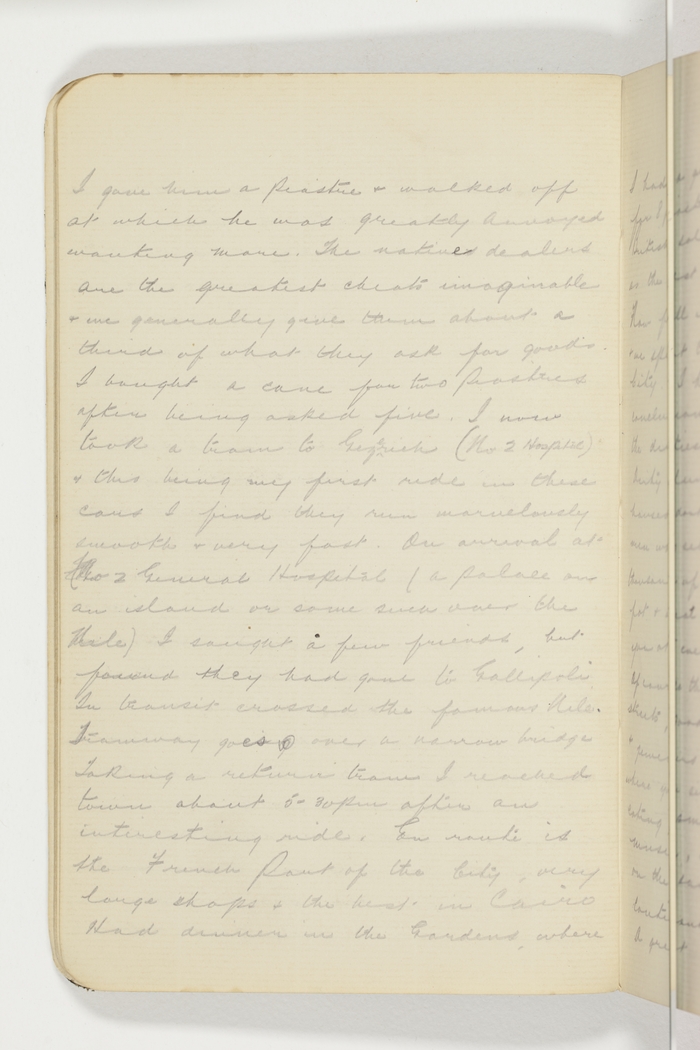 I gave him a Piastre & walked off
at which he was greatly annoyed
wanting more. The natives dealers
are the greatest cheats imaginable
& we generally give them about a
third of what they ask for goods.
I bought a cane for two Piastres
after being asked five. I now
took a tram to Gezireh (No 2 Hospital)
& this being my first ride in these
cars I find they run marvelously
smooth & very fast. On arrival at
No 2 General Hospital (a palace on
an island or some such over the
Nile) I sought a few friends, but
found they had gone to Gallipoli
In transit crossed the famous Nile.
Tramway goes over a narrow bridge
Taking a return tram I reached
town about 5-30pm after an
interesting ride. En route is
the French Part of the City, very
large shops & the best in Cairo
Had dinner in the Gardens, where